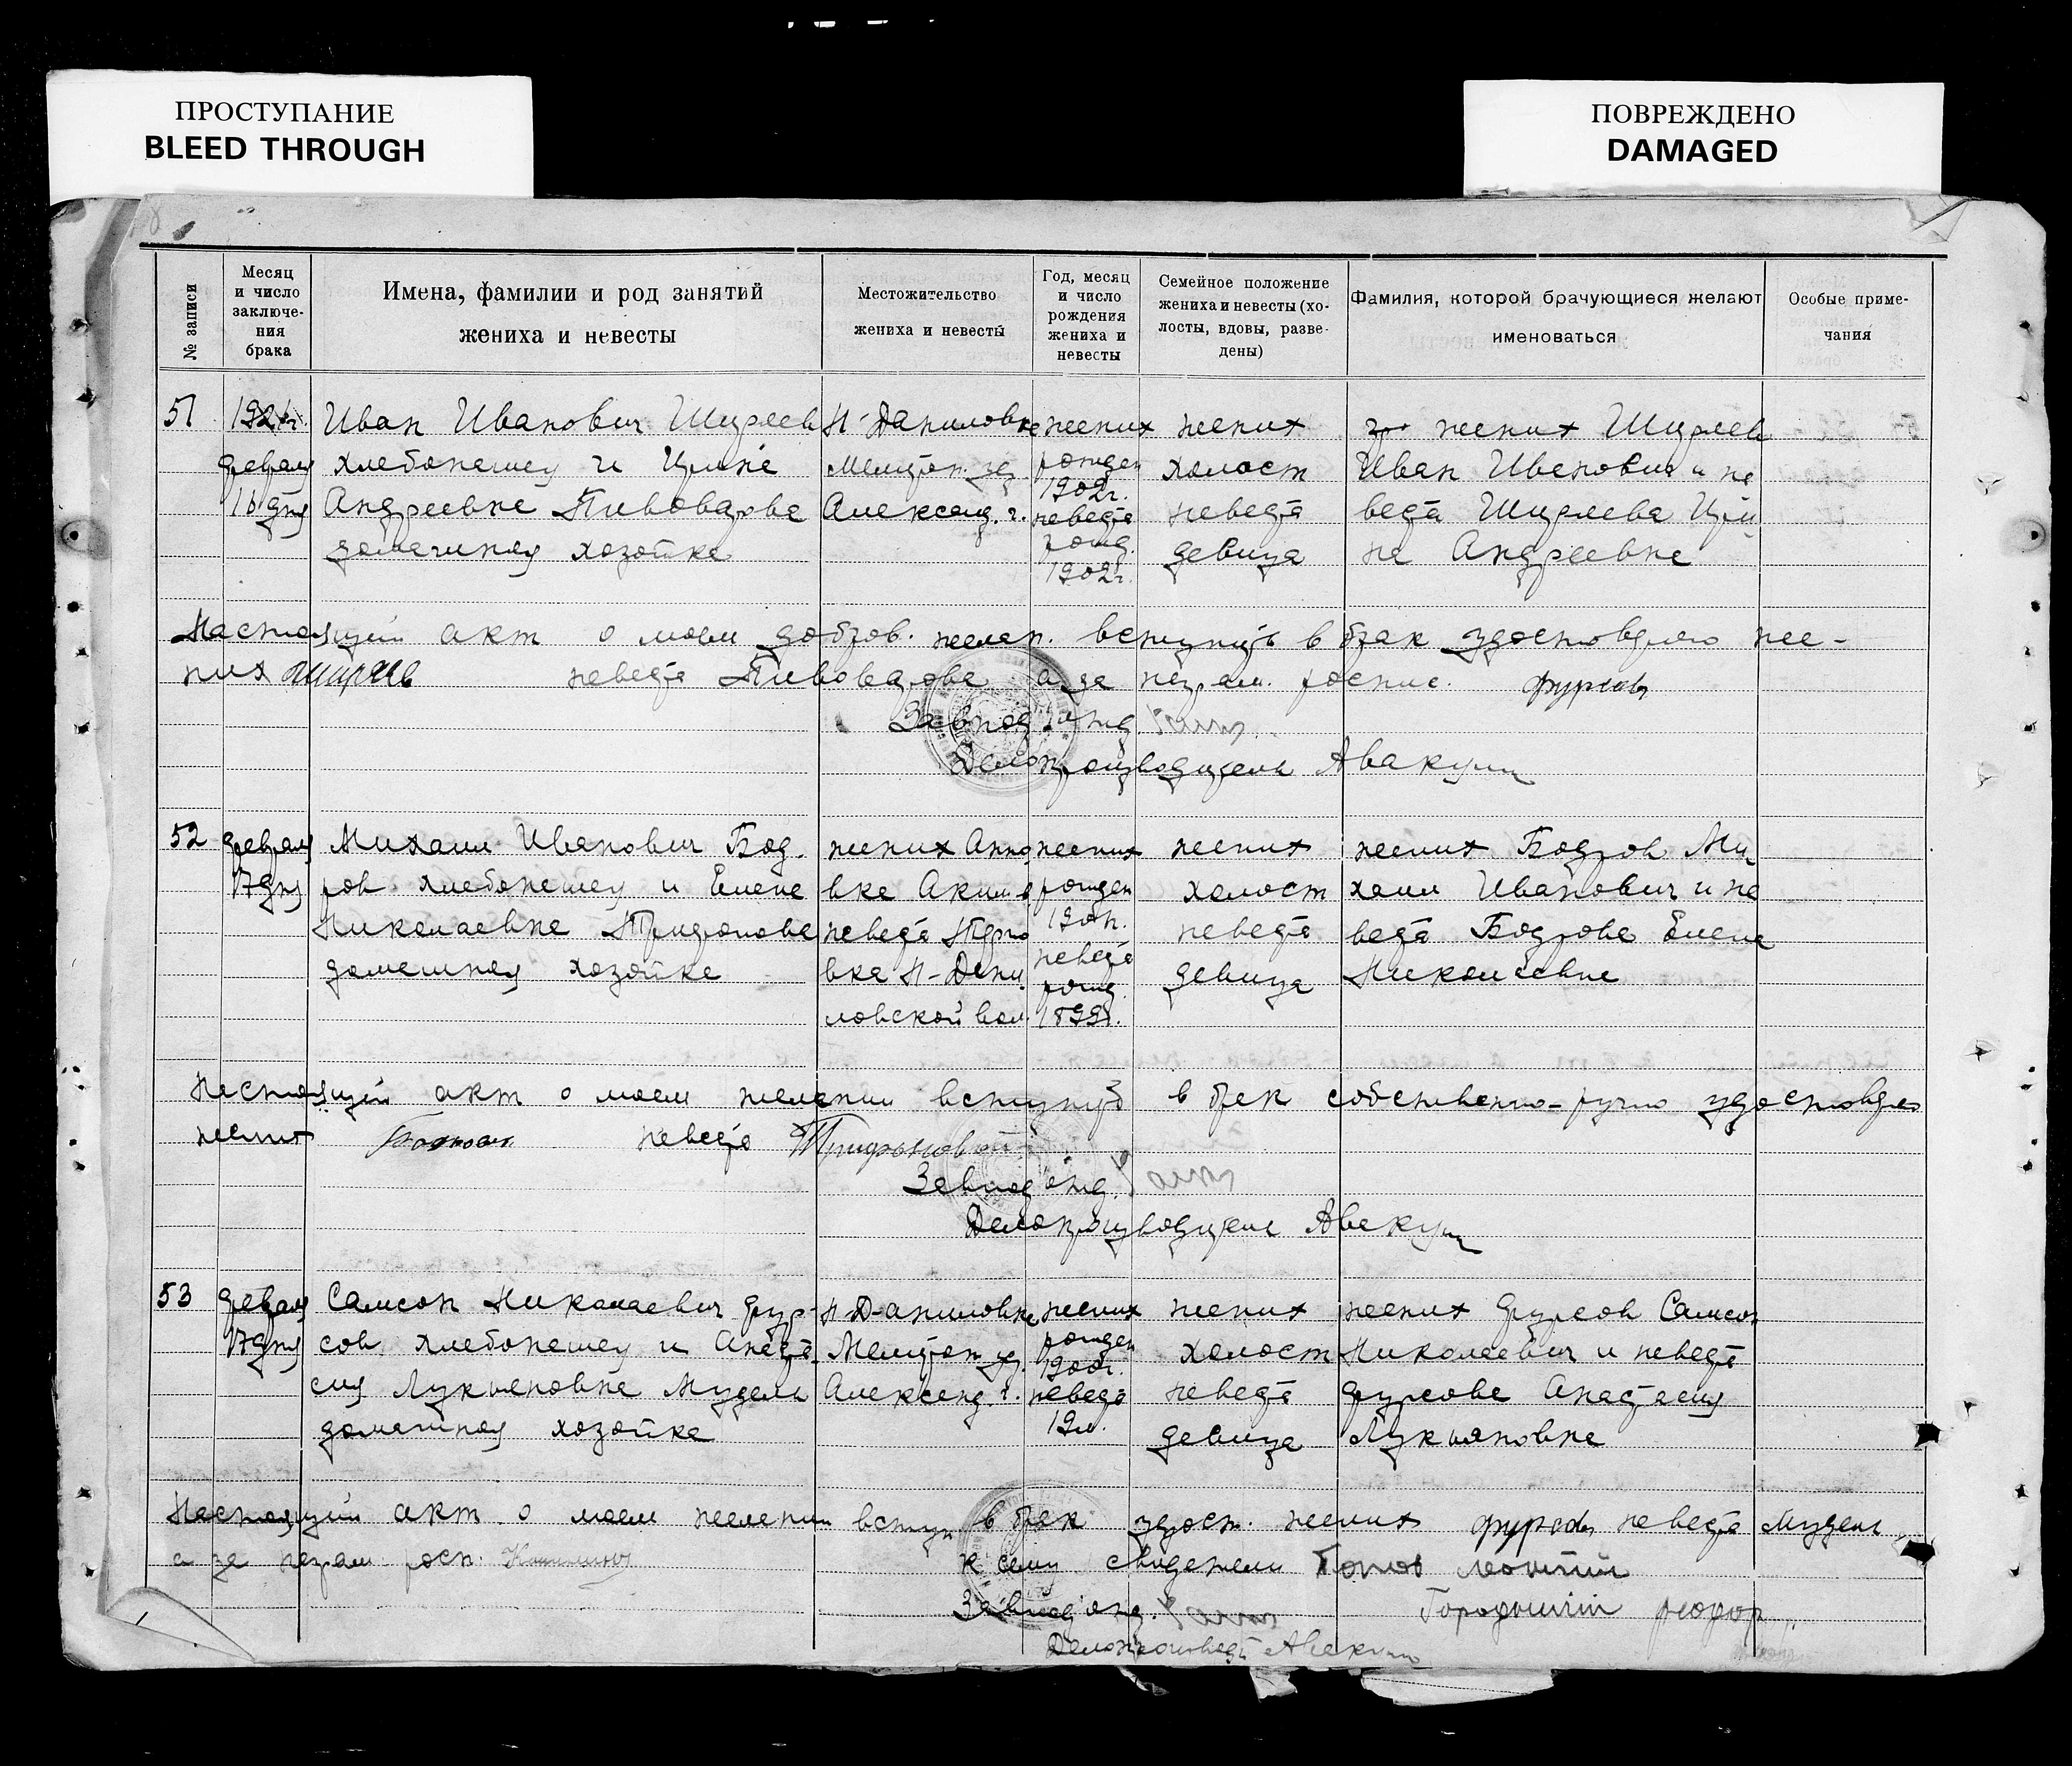 ПРОСТУПАНИЕ
BLEED THROUGH
ПОВРЕЖДЕНО
DAMAGED
№ записи
Месяц
и число
заключе-
ния
брака
Имена, фамилии и род занятий
жениха и невесты
Местожительство
жениха и невесты
Год, месяц
и число
рождения
жениха и
невесты
Семейное положение
жениха и невесты (хо-
лосты, вдовы, разве-
дены)
Фамилия, которой брачующиеся желают
именоваться
Особые приме-
чания
51
февраля
16 дня
Иван Иванович Ширяев
хлебопашец и
Андреевна Пивоварова
домашняя хозяйка
Н-Даниловка
Мелитоп. уез
Александ. г.
жених
рожден
1902г.
невеста
рожд.
1902г.
жених
холост
невеста
девица
жених Ширяев
Иван Иванович и не
веста Ширяева
на Андреевна
Настоящий акт о моем добров. желан. вступить в брак удостоверяю же-
них Ширяев невеста Пивоварова а за неграм. роспис. Фурсов
Завподотд
Делопроизводитель Авакум
52
февраля
17 дня
Михаил Иванович Бод.
ров хлебопашец и Елена
Николаевна Трифонова
домашняя хозяйка
жених Анно
вка Аким
невеста
вка Н-Дани
ловской вол.
жених
рожден
невеста
рожд.
1899г.
жених
холост
невеста
девица
жених Бодров Ми
хаил Иванович и не
веста Бодрова Елена
Николаевна
Настоящий акт о моем желании вступить в брак собственно-ручно удостоверяю
жених невеста Трифоновой
Завподотд.
Делопроизводитель Авакум
53
февраля
17 дня
Самсон Николаевич Фур-
сов хлебопашец и Анаста-
сия Лукьяновна Мудель
домашняя хозяйка
Н-Даниловка
Мелитоп. уез.
Александ. г.
жених
рожден
1900г.
невеста
жених
холост
невеста
девица
жених Фурсов Самсон
Николаевич и невеста
Фурсова Анастасия
Лукьяновна
Настоящий акт о моем желании вступ в брак удост. жених Фурсов невеста Мудель
а за неграм. росп.
к сему свидетели Попов Леонтий
Завподотд.